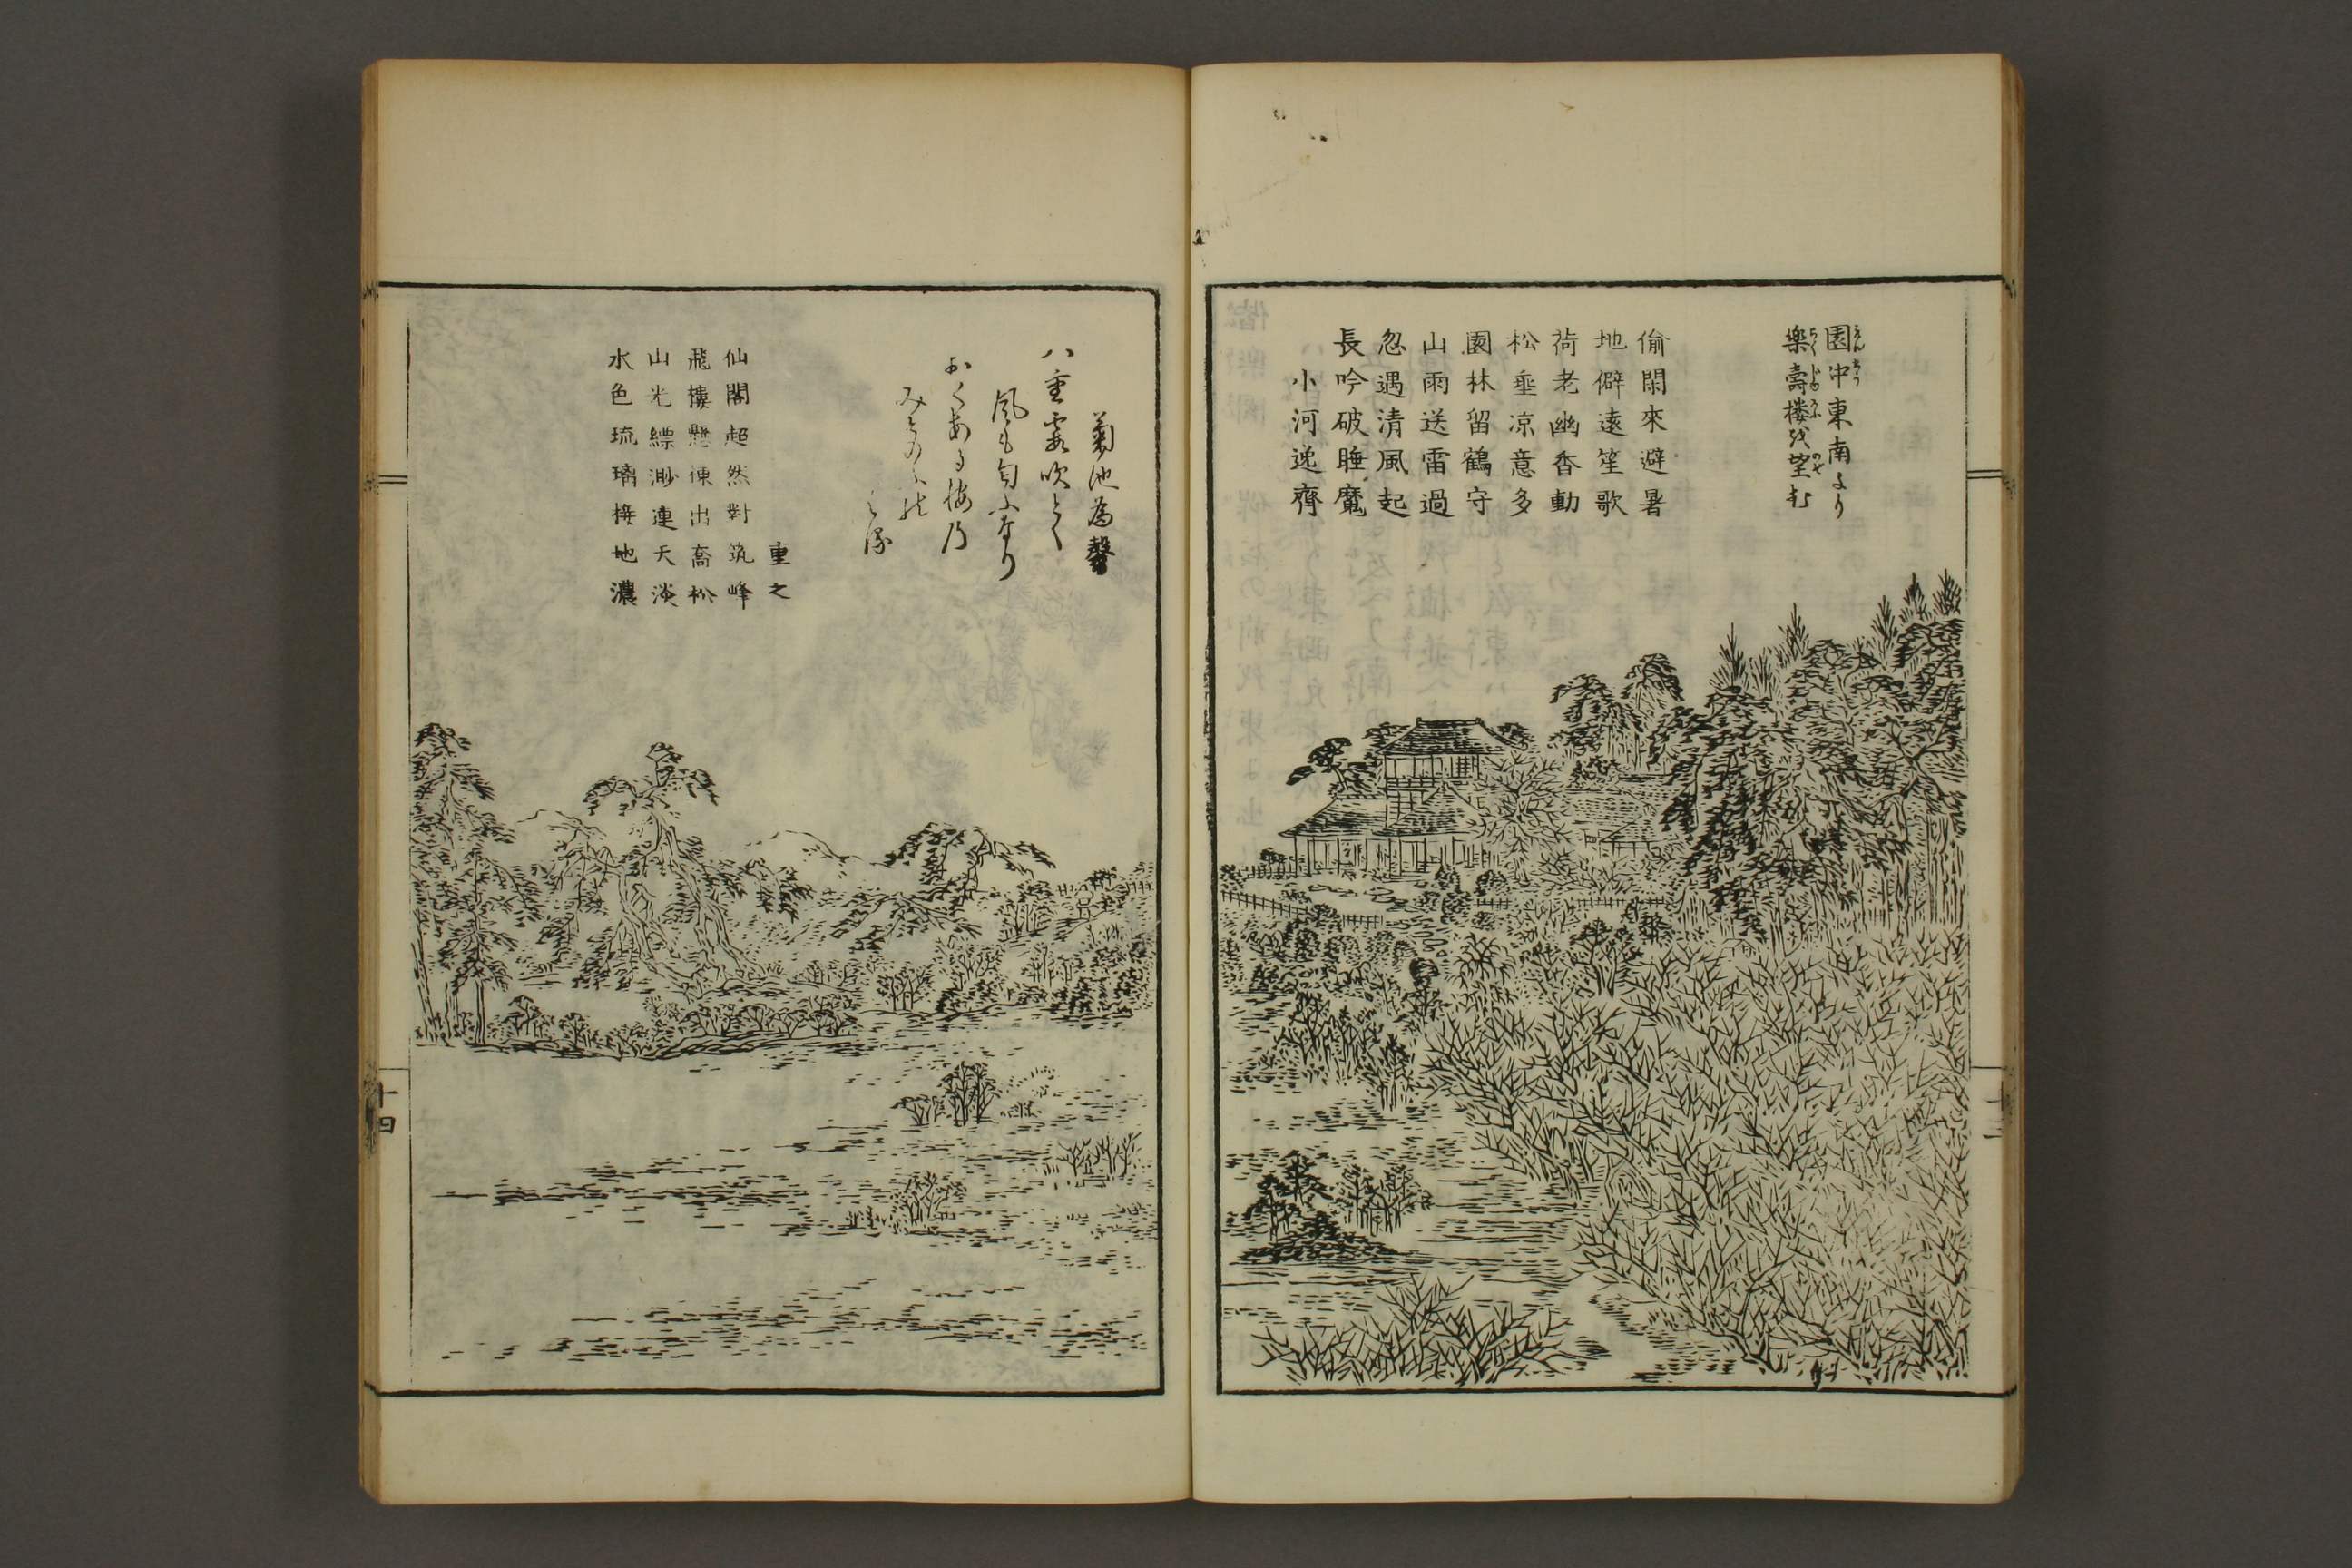 園中東南より
樂壽楼を望む
偷閑來避暑
地僻遠笙歌
荷老幽香動
松垂凉意多
園林留鶴守
山雨送雷過
忽遇清風起
長吟破睡魔
小河逸齊
菊池為馨
八重霞吹とく
風も匂ふなり
重之
仙閣超然對筑峰
飛樓懸棟出喬松
山光縹渺連天淡
水色琉璃接地濃
十四